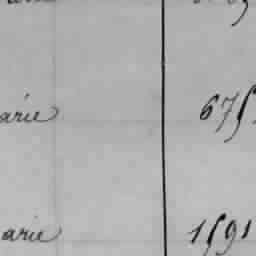 arie 675
arie 1591